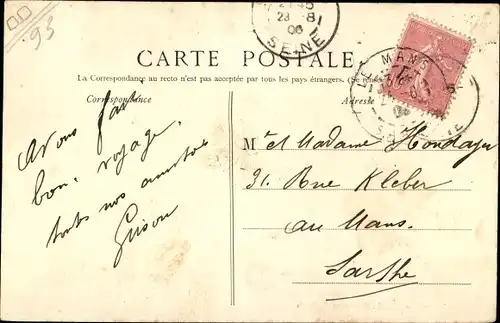 93
21 45
23 - 8
06
SEINE
CARTE POSTALE
La Correspondance au recto n'est pas acceptée par tous les pays étrangers. (Se rens
Correspondance
Adresse
LE MANS
Avons fait
bon voyage,
touts nos amitiés
M r et Madame
31. Rue Kleber
au Mans.
Sarthe